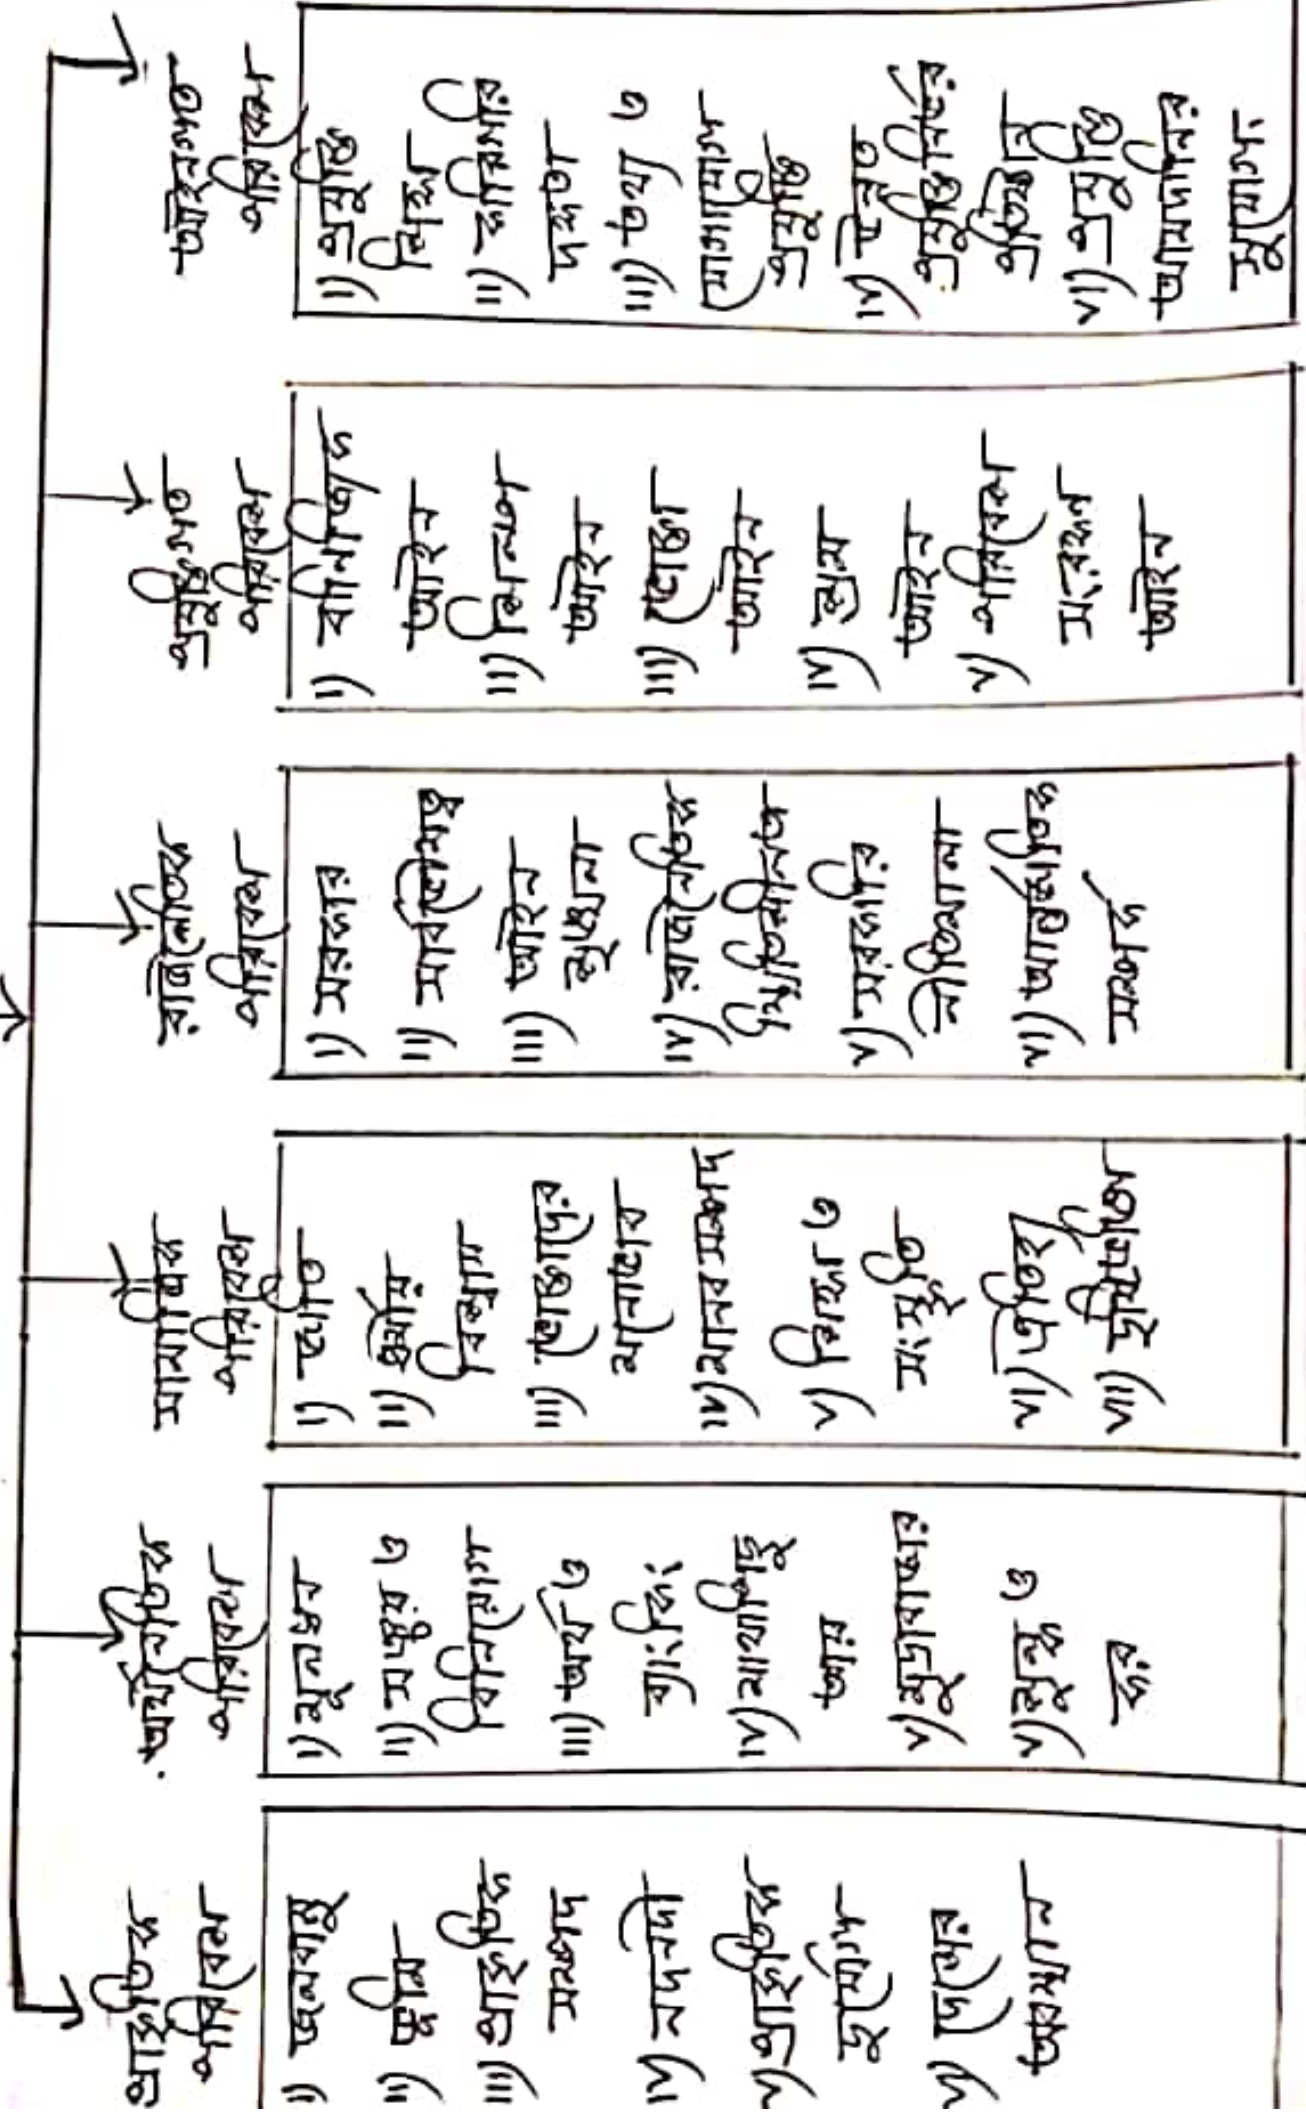 প্রাকৃতিক
পরিবেশ
i) জলবায়ু
ii) ভূমি
iii) প্রাকৃতিক
সম্পদ
iv) নদনদী
v) প্রাকৃতিক
দুর্যোগ
vi) দেশের
অবস্থান
অর্থনৈতিক
পরিবেশ
i) মূলধন
ii) সঞ্চয় ও
বিনিয়োগ
iii) অর্থ ও
ব্যাংকিং
iv) মাথাপিছু
আয়
v) মুদ্রাবাজার
v) শুল্ক ও
কর
সামাজিক
পরিবেশ
i) জাতি
ii) ধর্মীয়
বিশ্বাস
iii) ভোক্তাদের
মনোভাব
iv) মানব সম্পদ
v) শিক্ষা ও
সংস্কৃতি
vi) ঐতিহ্য
vii) দৃষ্টিভঙ্গি
রাজনৈতিক
পরিবেশ
i) সরকার
ii) সার্বভৌমত্ব
iii) আইন
শৃঙ্খলা
iv) রাজনৈতিক
স্থিতিশীলতা
v) সরকারি
নীতিমালা
vi) আন্তর্জাতিক
সম্পর্ক
প্রযুক্তিগত
পরিবেশ
i) বানিজ্যিক
আইন
ii) শিল্প
আইন
iii) ভোক্তা
আইন
iv) শ্রম
আইন
v) পরিবেশ
সংরক্ষণ
আইন
আইনগত
পরিবেশ
i) প্রযুক্তি
শিক্ষা
ii) কারিগরি
দক্ষতা
iii) তথ্য ও
যোগাযোগ
প্রযুক্তি
iv) উন্নত
প্রযুক্তিনির্ভর
প্রতিষ্ঠান
v) প্রযুক্তি
আমদানির
সুযোগ